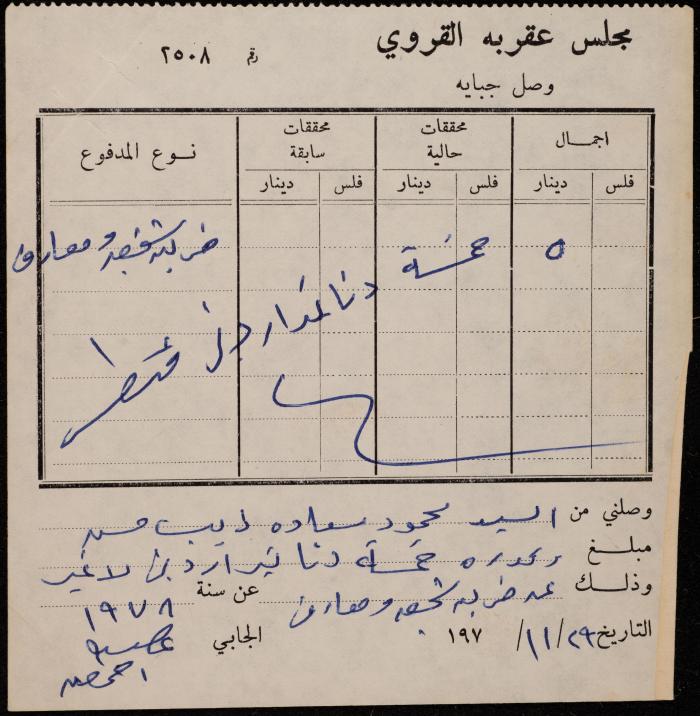 مجلس عقربه القروي
رقم ٢٥٠٨
وصل جبايه
اجمال محققات حالية محققات سابقة نوع المدفوع
فلس دينار فلس دينار فلس دينار
٥ خمسة ضريبة شخصية ومعارف
دنانير اردني فقط
وصلني من السيد محمود سعاده ذيب حسن
مبلغ وقدره خمسة دنانير اردني لا غير
وذلك عن ضريبة شخصية ومعارف عن سنة ١٩٧٨
التاريخ ٢٩/١١/ ١٩٧ الجابي